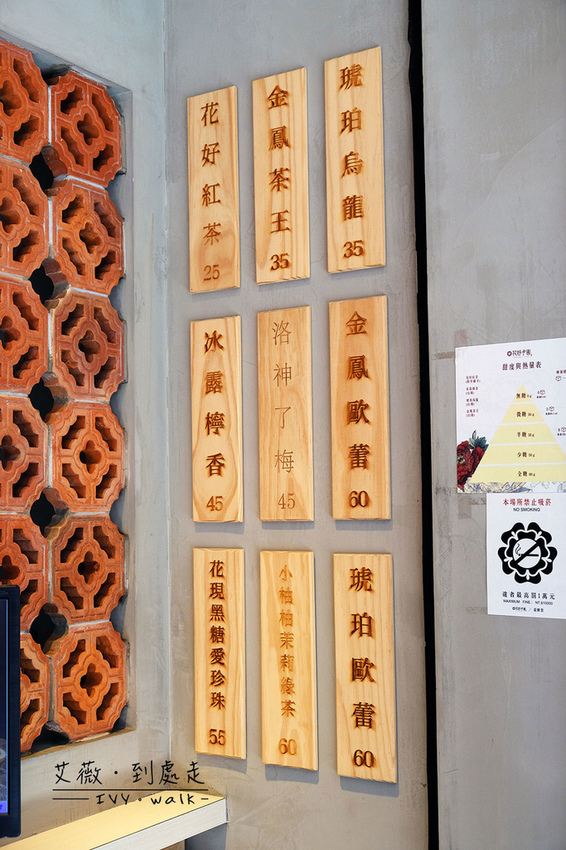 花好紅茶
25
金鳳茶王
35
琥珀烏龍
35
冰露檸香
45
洛神了梅
45
金鳳歐蕾
60
花現黑糖愛珍珠
55
小柚柚茉莉綠茶
60
琥珀歐蕾
60
甜度與熱量表
無糖
微糖
半糖
少糖
全糖
本場所禁止吸菸
NO SMOKING
違者最高罰1萬元
MAXIMUM FINE : NT $10000
艾薇·到處走
IVY·walk